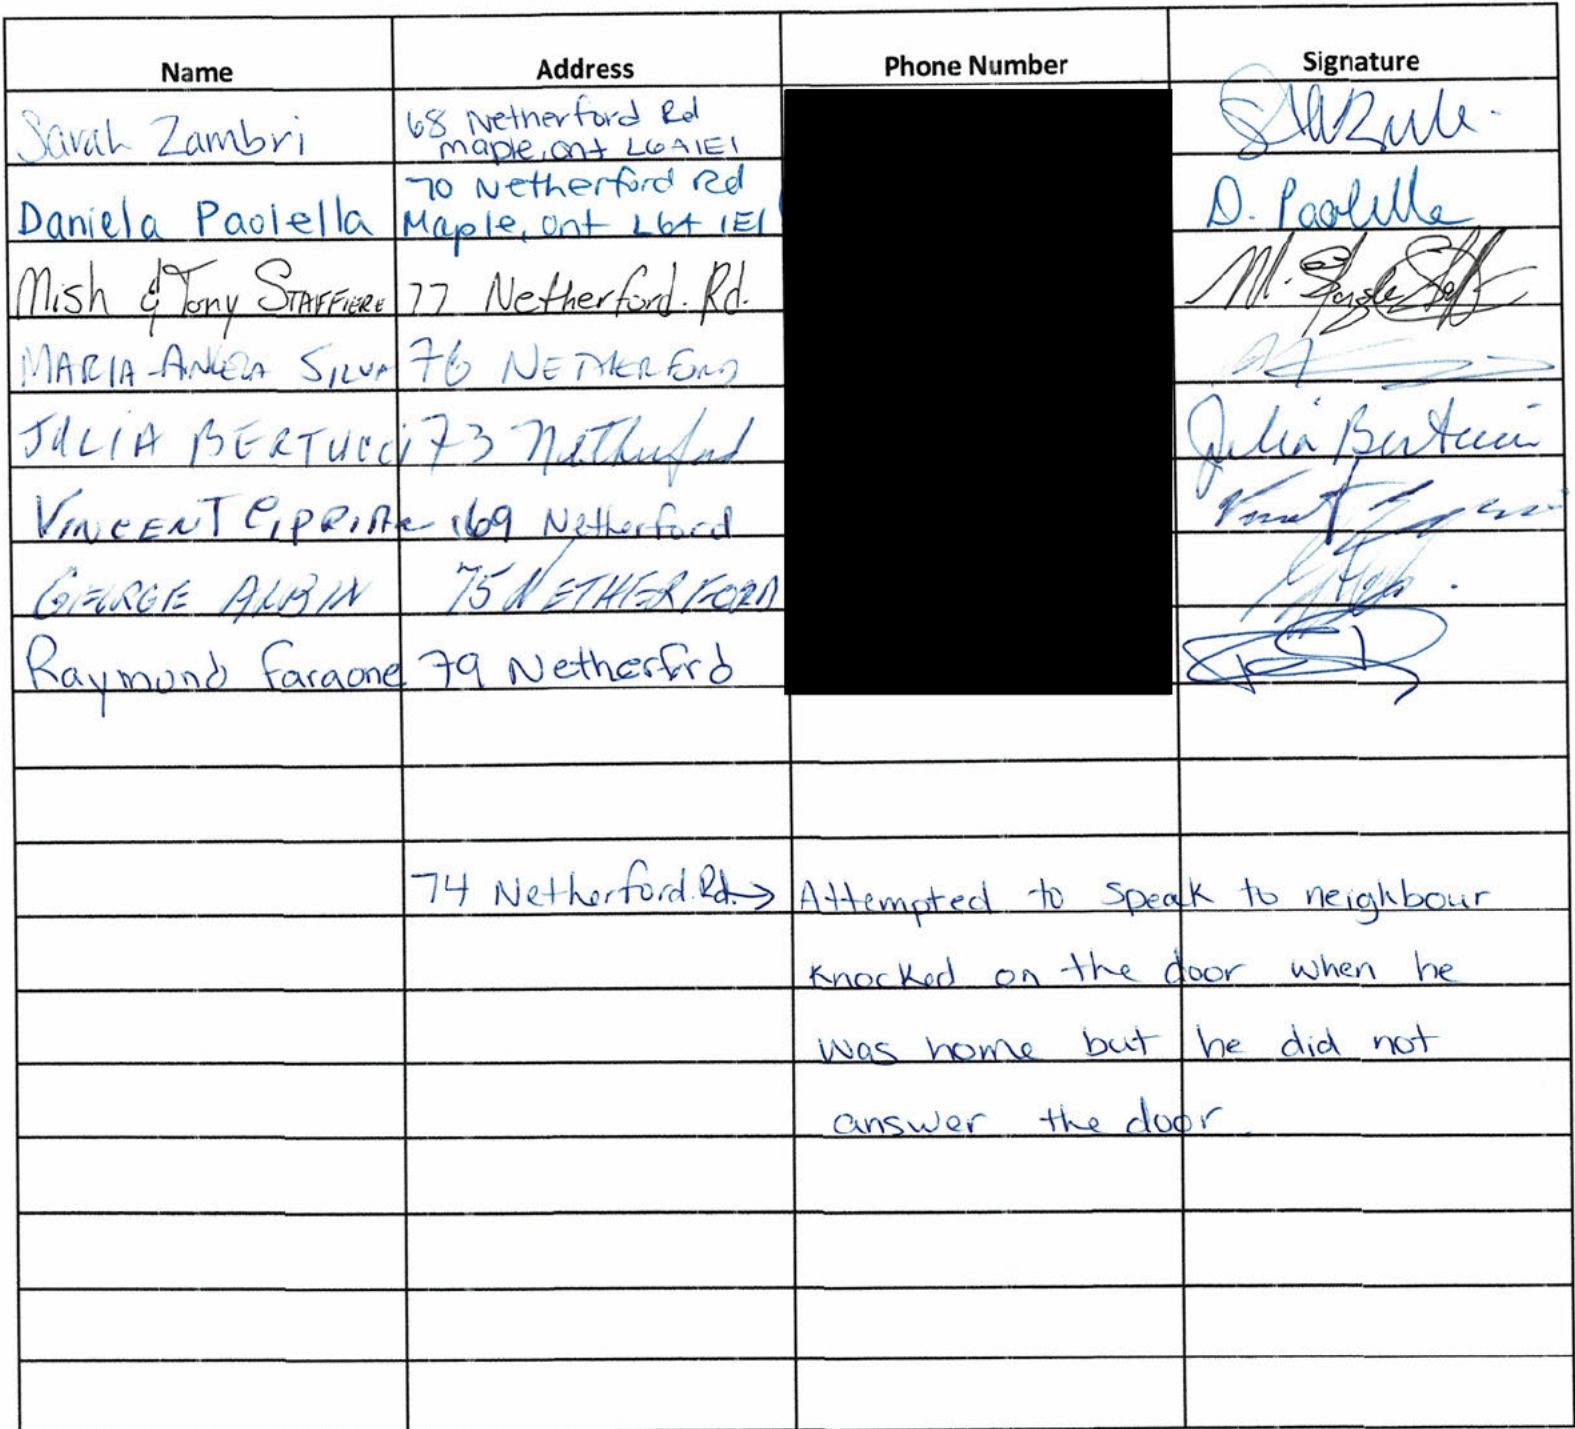 Name Address Phone Number Signature
Sarah Zambri 68 Netherford Rd
maple, ont L6A1E1
Daniela Paolella 70 Netherford Rd
Maple, ont L6A 1E1 D. Paolella
Mish & Tony STAFFIERE 77 Netherford. Rd.
MARIA-ANGELA SILVA 76 NETHERFORD
JULIA BERTUCCI 73 Netherford Julia Bertucci
VINCENT 69 Netherford
GEORGE ALBIN 75 NETHERFORD
Raymond Faraone 79 Netherfrd
74 Netherford. Rd. → Attempted to speak to neighbour
knocked on the door when he
was home but he did not
answer the door.